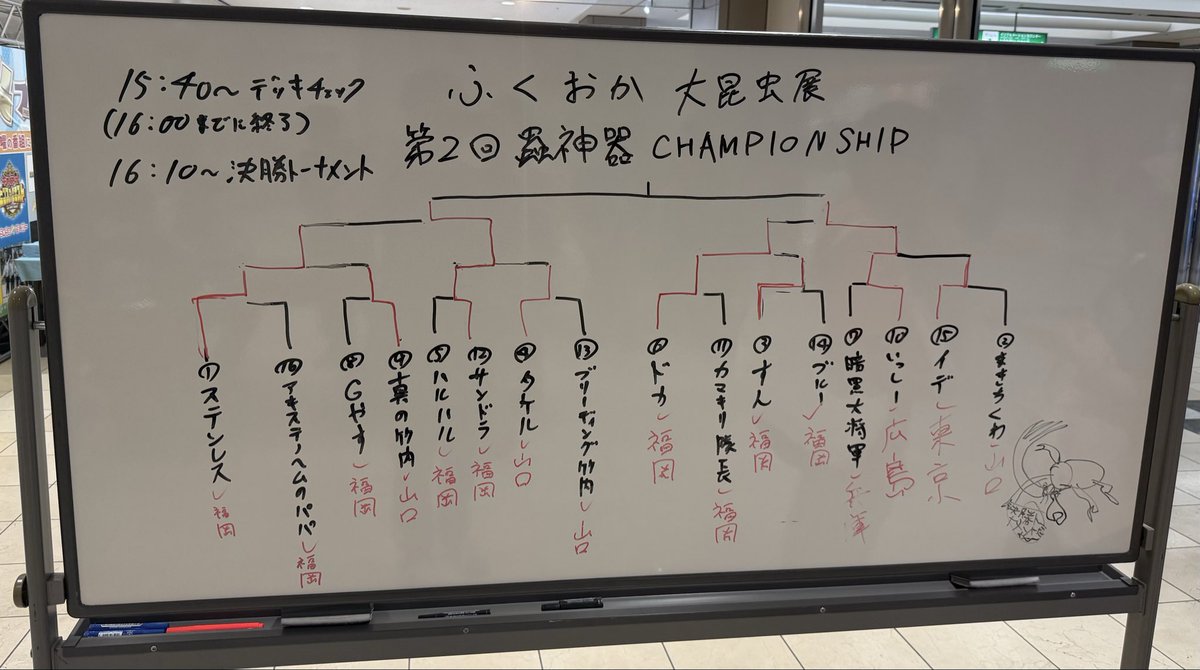 15:40～デッキチェック
(16:00までに終了)
16:10～決勝トーナメント
ふくおか 大昆虫展
第2回 蟲神器 CHAMPIONSHIP
① ステンレス 福岡
⑯ アキステノヘムのパパ 福岡
⑧ Gやす 福岡
⑨ 真の竹内 山口
⑤ ハルハル 福岡
⑫ サンドラ 福岡
④ タケル 山口
⑬ ブリーディング竹内 山口
⑥ ドカ 福岡
⑪ カマキリ隊長 福岡
③ すん 福岡
⑭ ブルー 福岡
⑦ 暗黒大将軍
⑩ いっしー 広島
⑮ イデ 東京
② まさちくわ 山口